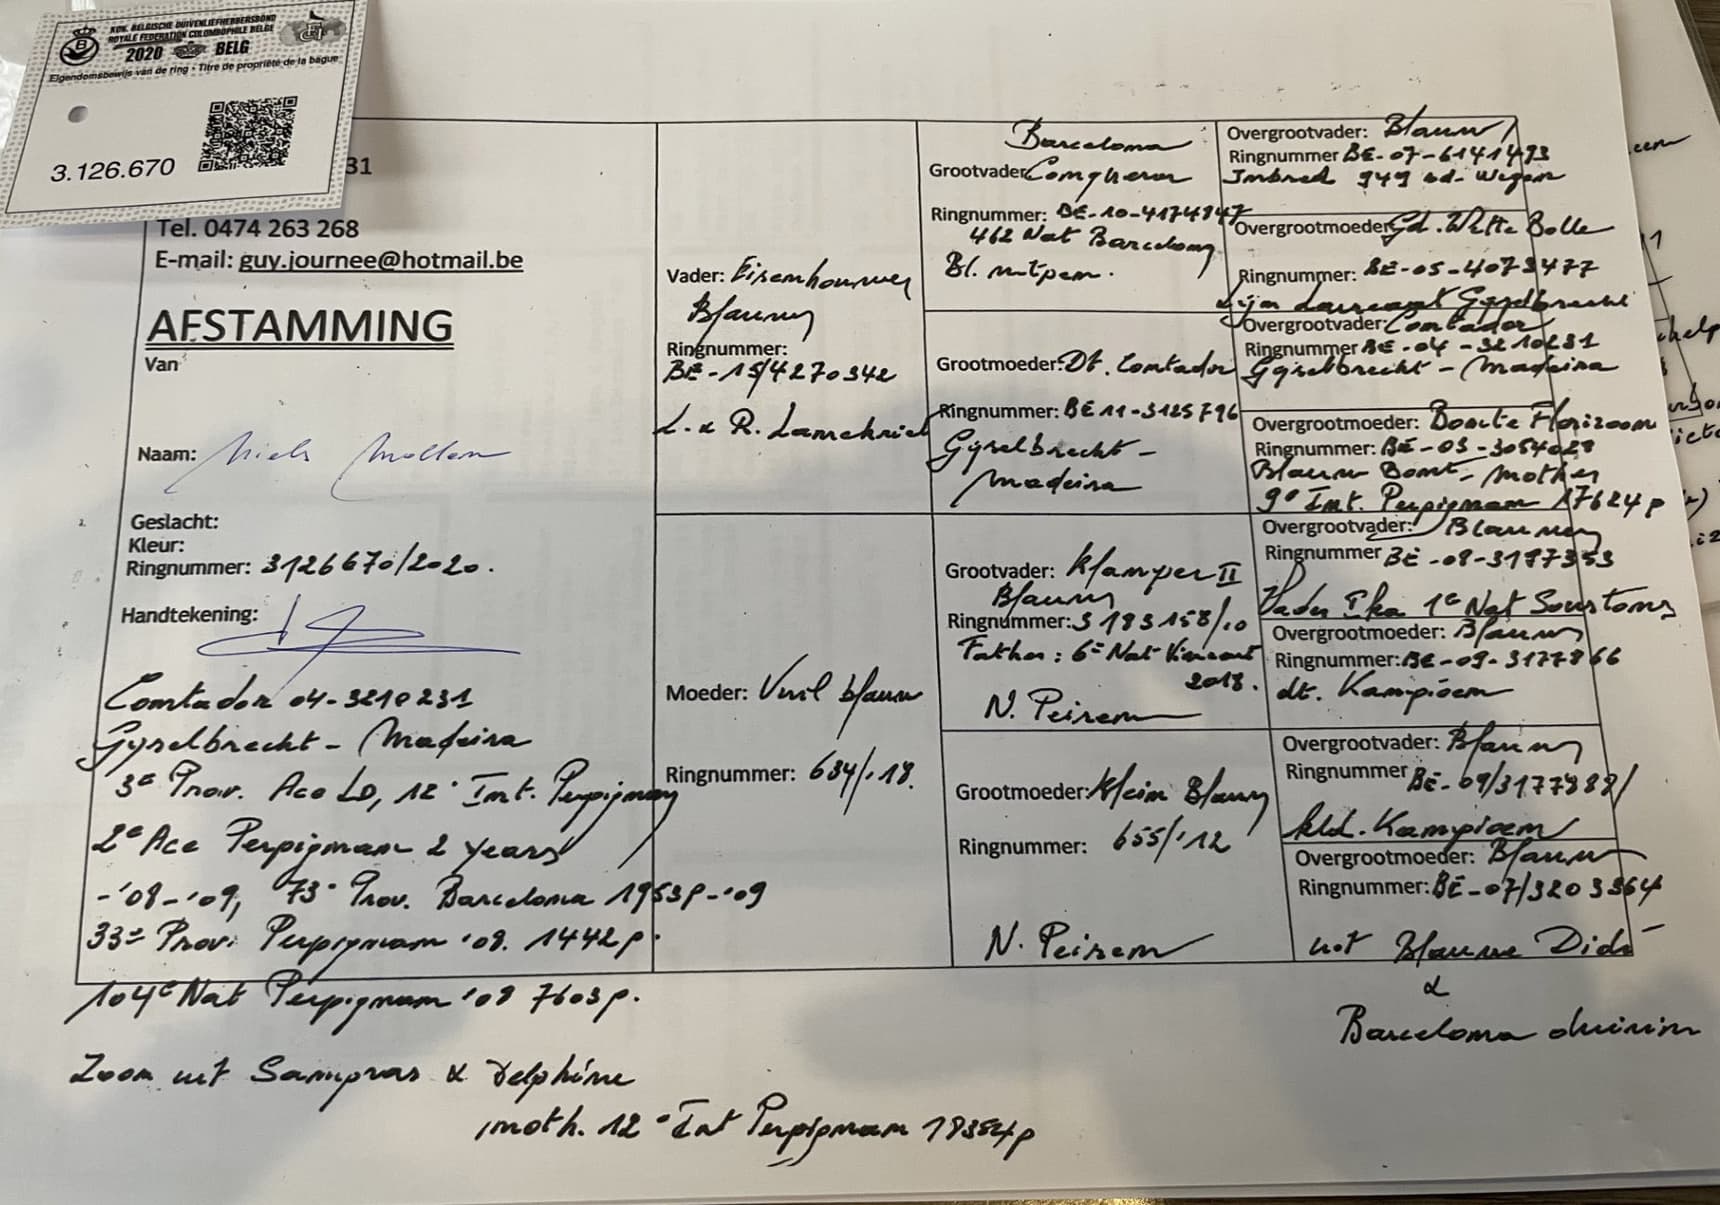 KON. BELGISCHE DUIVENLIEFHEBBERSBOND
ROYALE FEDERATION COLOMBOPHILE BELGE
2020 BELG
Eigendomsbewijs van de ring • Titre de propriété de la bague
3.126.670
31
Tel. 0474 263 268
E-mail: guy.journee@hotmail.be
AFSTAMMING
Van
Naam: Niels Mollem
Geslacht:
Kleur:
Ringnummer: 3126670/2020.
Handtekening:
Contador 04-3210231
Gyselbrecht - Madeira
3e Prov. Ace LD, 12e Int. Perpignan
2e Ace Perpignan 2 years
-'08-'09, 73e Prov. Barcelona 1953p-'09
33e Prov. Perpignan '08. 1442p.
104e Nat Perpignan '08 7603p.
Zoon uit Sampras & Delphine
moth. 12e Int Perpignan 18354p
Vader:
Blauw
Ringnummer:
BE-15/4270342
L. & R.
Moeder: Vuil blauw
Ringnummer: 634/'18.
Barcelona
Grootvader:
Ringnummer: BE-10-4174847
462 Nat Barcelona
Bl. witpen.
Grootmoeder: Dt. Contador
Ringnummer: BE11-3125796
Gyselbrecht -
Madeira
Grootvader: Klamper II
Blauw
Ringnummer: 3183158/10
Father: 6e Nat Vincent
2018.
N. Peiren
Grootmoeder: Klein Blauw
Ringnummer: 655/'12
N. Peiren
Overgrootvader: Blauw
Ringnummer BE-07-6141493
Inbred 949 v/d Wegen
Overgrootmoeder: Gd. Witte Bolle
Ringnummer: BE-05-4073477
Lijn Laureant Gyselbrecht
Overgrootvader: Contador
Ringnummer BE-04-3210231
Gyselbrecht - Madeira
Overgrootmoeder: Bonte Florizoon
Ringnummer: BE-03-3054028
Blauw Bont, mother
9e Int. Perpignan 17624p
Overgrootvader: Blauw
Ringnummer BE-08-3187353
Vader Ika 1e Nat Soustons
Overgrootmoeder: Blauw
Ringnummer: BE-09-3177866
dt. Kampioen
Overgrootvader: Blauw
Ringnummer BE-09/3177888/
kld. Kampioen
Overgrootmoeder: Blauw
Ringnummer: BE-07/3203364
uit Blauwe Didi
&
Barcelona duivin